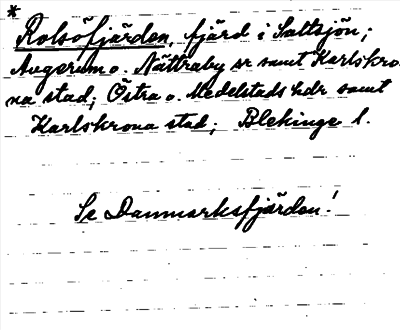 *
Rolsöfjärden, fjärd i Saltsjön;
Augerum o. Nättraby sr samt Karlskro-
na stad; Östra o. Medelstads hdr samt
Karlskrona stad; Blekinge l.
Se Danmarksfjärden!